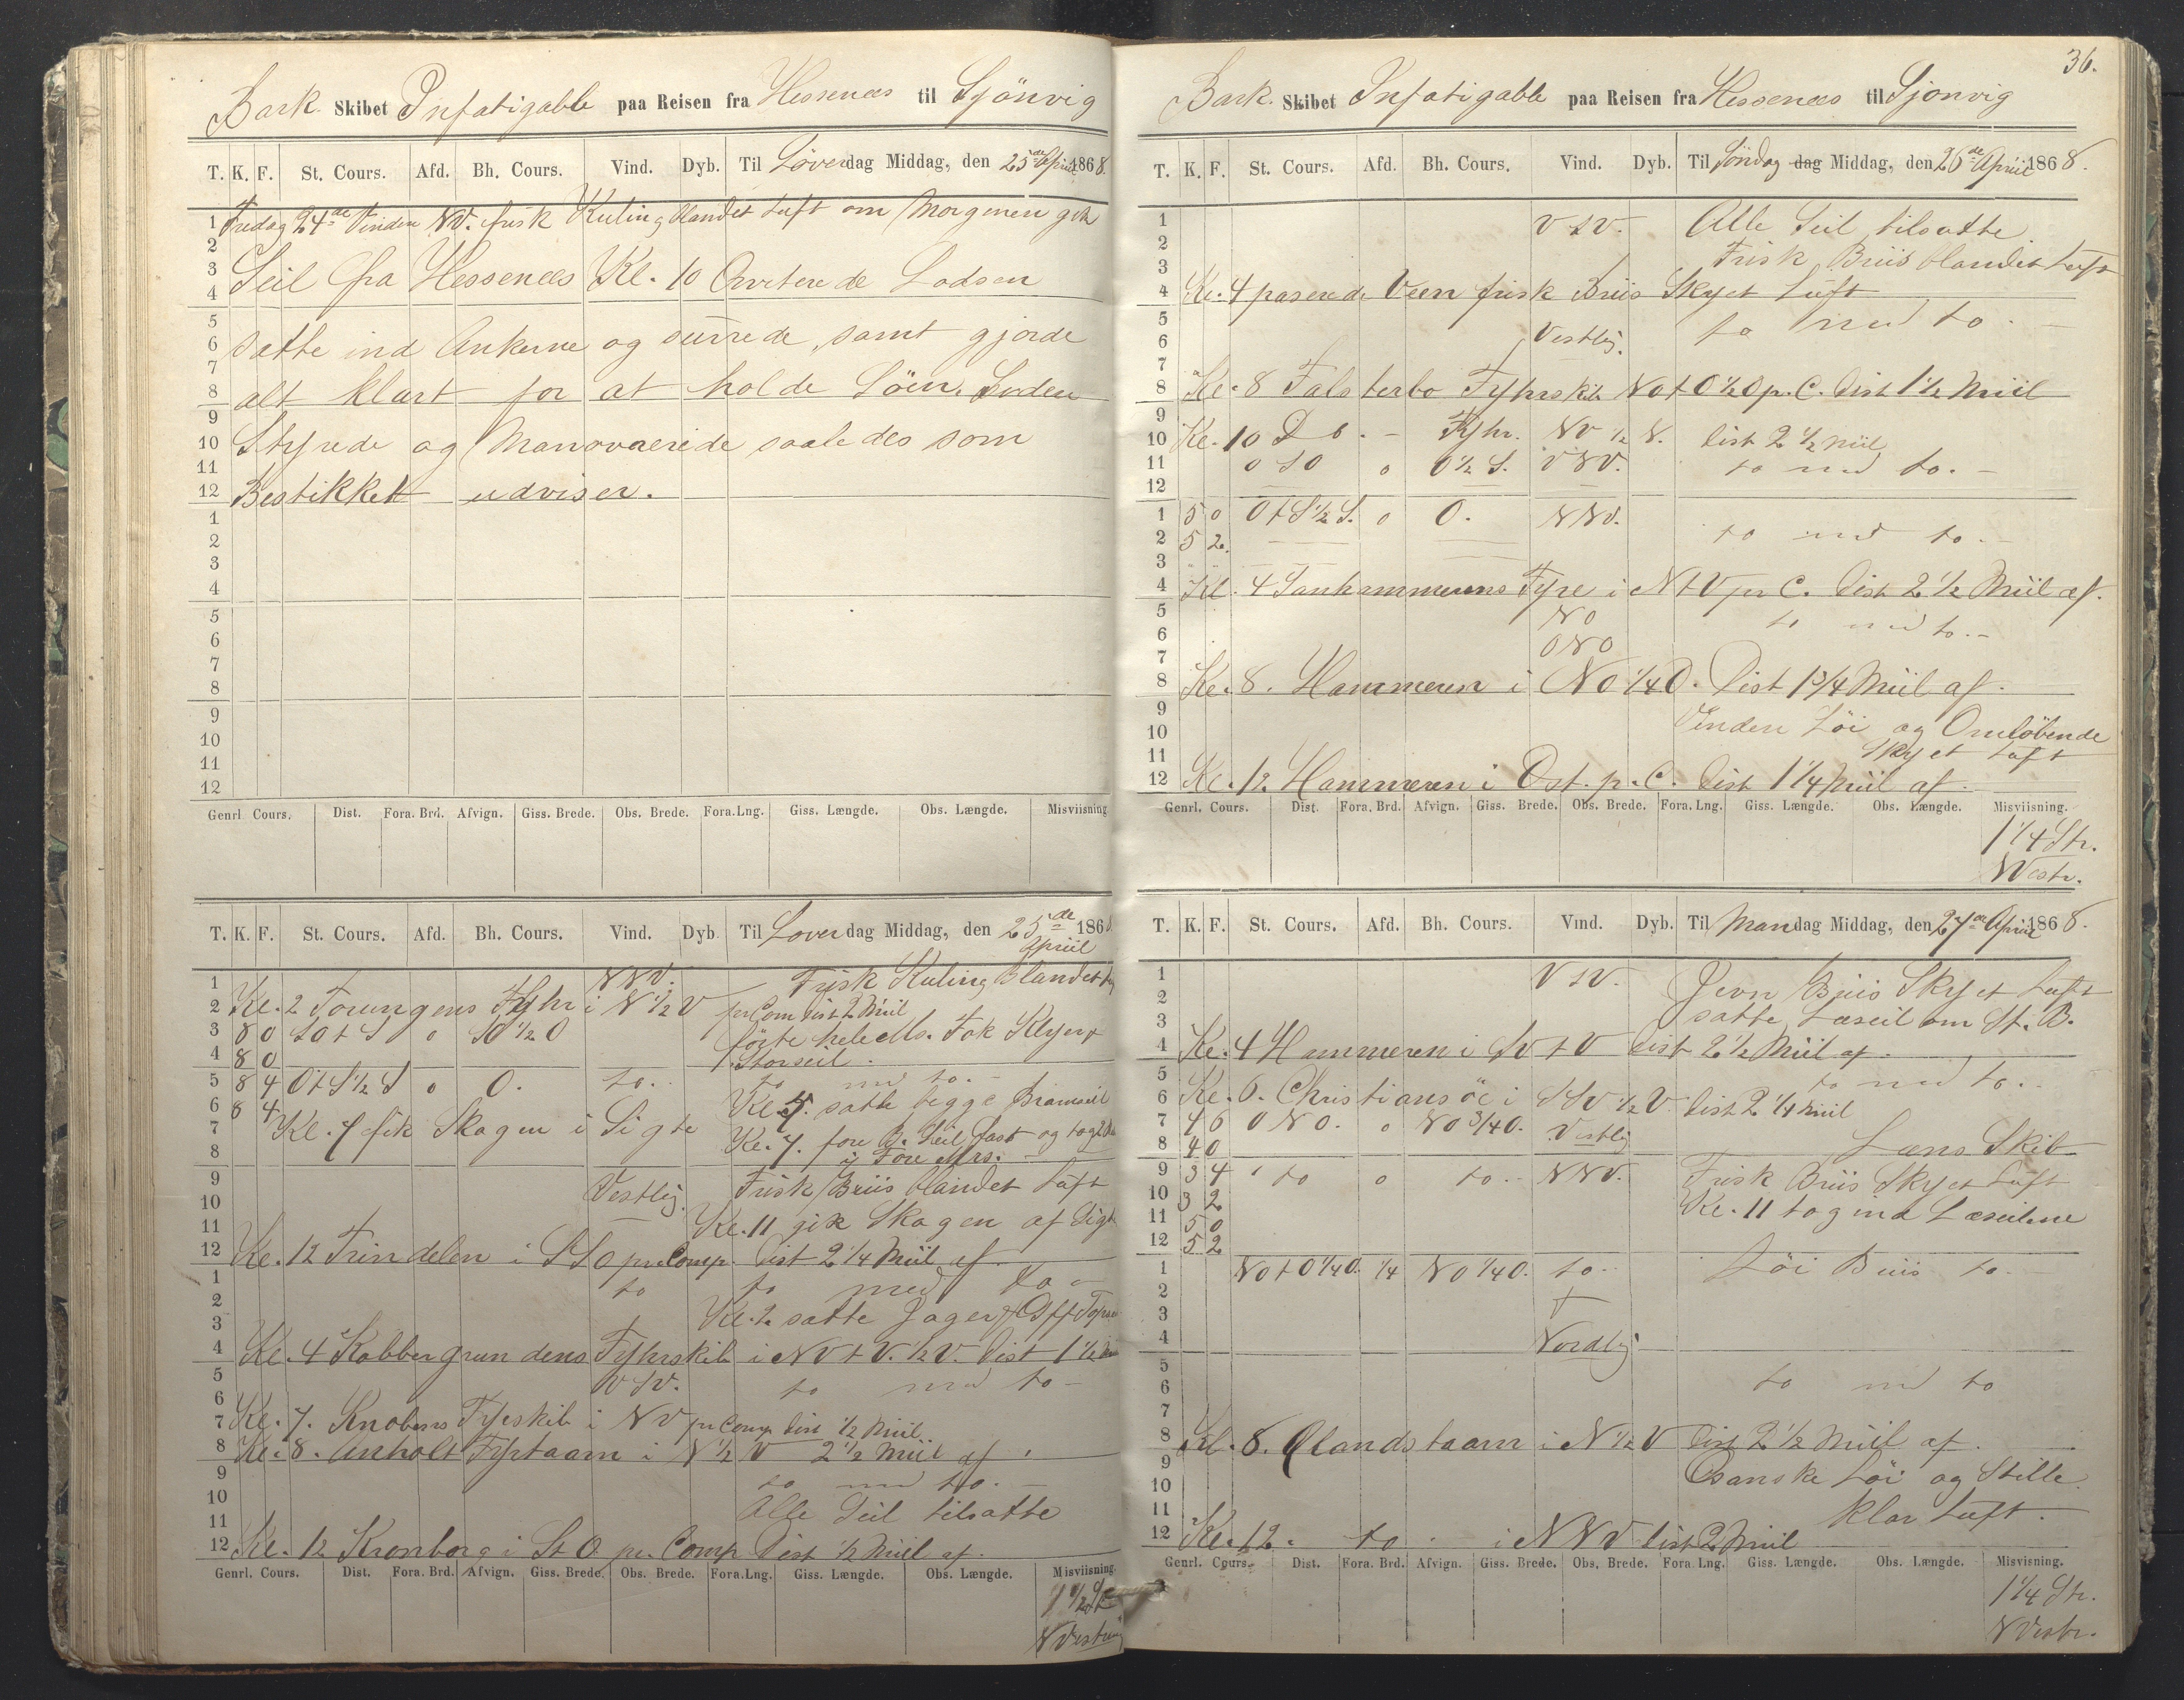 Bark Skibet Infatigable paa Reisen fra Hessenæs til Sjönvig
T. K. F. St. Cours. Afd. Bh. Cours. Vind. Dyb. Til Löverdag Middag, den 25de April 1868.
1 Fredag 24de Vinden NV. frisk Kuling blandet Luft om Morgenen gik
2
3 Seil fra Hessenæs Kl. 10 Qviterede Lodsen
4
5
6 satte ind Ankerne og surrede, samt gjorde
7
8 alt klart for at holde Söen. Siden
9
10 Styrede og Manovrerede saaledes som
11
12 Bestikket udviser.
1
2
3
4
5
6
7
8
9
10
11
12
Genrl Cours. Dist. Fora. Brd. Afvign. Giss. Brede. Obs. Brede. Fora.Lng. Giss. Længde. Obs. Længde. Misviisning
T. K. F. St. Cours. Afd. Bh. Cours. Vind. Dyb. Til Loverdag Middag, den 25de April 1868
1 NNV. Frisk Kuling Blandet
2 Kl. 2 Torungens Fyhr i N 1/2 V pr Com Dist 2 Miil
3 8 0 SO t S o SO 1/2 O förte hele Ms. Fok Klyver
4 8 0 Storseil.
5 8 4 O t S 1/2 S o O. to.. to med to.-
6 8 4 satte begge Bramseil
7 Kl. 7 fik Skagen i Sigte Kl. 7. fore B. Seil fast og tog 2
8 i Fore Mrs.
9 Vestlig. Frisk Briis blandet Luft
10
11 Kl. 11 gik Skagen af Sigte
12 Kl. 12 Trindelen i SSO pr. Comp. Dist 2 1/4 Miil af.
1 to to med to -
2 Kl. 2 satte Jager
3
4 Kl. 4 Kobbergrundens Fyhrskib i NV t V. 1/2 V. Dist 1 1/2
5 VSV. to med to -
6
7 Kl. 7. Knobens Fyrskib i NV pr Comp Dist 1/2 Miil
8 Kl. 8. Anholt Fyrtaarn i N 1/2 V 2 1/2 Miil af.
9 to med to.-
10
11 Alle Seil tilsatte
12 Kl. 12 Kronborg i S t O pr. Comp Dist 1/2 Miil af.
Genrl. Cours. Dist. Fora. Brd. Afvign. Giss. Brede. Obs. Brede. Fora.Lng. Giss. Længde. Obs. Længde. Misviisning.
1 1/2 St
NVestring
36.
Bark. Skibet Infatigable paa Reisen fra Hessenæs til Sjonvig
T. K. F. St. Cours. Afd. Bh. Cours. Vind. Dyb. Til Söndag dag Middag, den 26de April 1868.
1 V t V. Alle Seil tilsatte
2
3 Frisk Briis blandet Luft
4 Kl. 4 paserede Veen frisk Briis Skyet Luft
5 to med to.
6 Vestlig.
7
8 Kl. 8 Falsterbo Fyhrskib NO t O 1/2 O p. C. Dist 1 1/2 Miil
9
10 Kl. 10 Do. - Fyhr. NV 1/2 N. Dist 2 1/2 Miil
11 O S O o O 1/2 S. VNV. to med to.-
12
1 5 0 O t S 1/2 S. o O. NNV.
2 5 2. to med to.-
3
4 Kl. 4 Sanhammerens Fyre i N t V pr C. Dist 2 1/2 Miil af.
5 NO to med to.-
6 ONO
7
8 Kl. 8. Hammeren i NO 1/4 O. Dist 1 3/4 Miil af.
9
10 Vinden Löi og Omlöbende
11 Skyet Luft
12 Kl. 12. Hammeren i Ost. p. C. Dist 1 1/4 Miil af.
Genrl. Cours. Dist. Fora. Brd. Afvign. Giss. Brede. Obs. Brede. Fora.Lng. Giss. Længde. Obs. Længde. Misviisning.
1 1/4 Str.
NVestr.
T. K. F. St. Cours. Afd. Bh. Cours. Vind. Dyb. Til Mandag Middag, den 27de April 1868.
1 V t V. Jevn Briis Skyet Luft
2
3 satte Læseil om St. B.
4 Kl. 4 Hammeren i SV t V Dist 2 1/2 Miil af.
5 to med to..
6 Kl. 6. Christiansöe i SSV 1/2 V. Dist 2 1/4 Miil
7 4 6 O N O. o NO 3/4 O. Vestlig
8 4 0 Læns Skib
9 3 4 to o to.. NNV. Frisk Briis Skyet Luft
10 3 2 Kl. 11 tog ind Læseilene
11 5 0
12 5 2
1 NO t O 1/4 O. 1/4 NO 1/4 O. to.. Löi Briis to.
2
3
4 Nordlig
5
6 to med to
7
8 Kl. 8. Ølandstaarn i N 1/2 V Dist 2 1/2 Miil af.
9
10 Ganske Löi og Stille.
11 klar Luft.
12 Kl. 12. to. i NNV Dist 2 Miil
Genrl. Cours. Dist. Fora. Brd. Afvign. Giss. Brede. Obs. Brede. Fora. Lng. Giss. Længde. Obs. Længde. Misvisning.
1 1/4 Str.
NVestr.